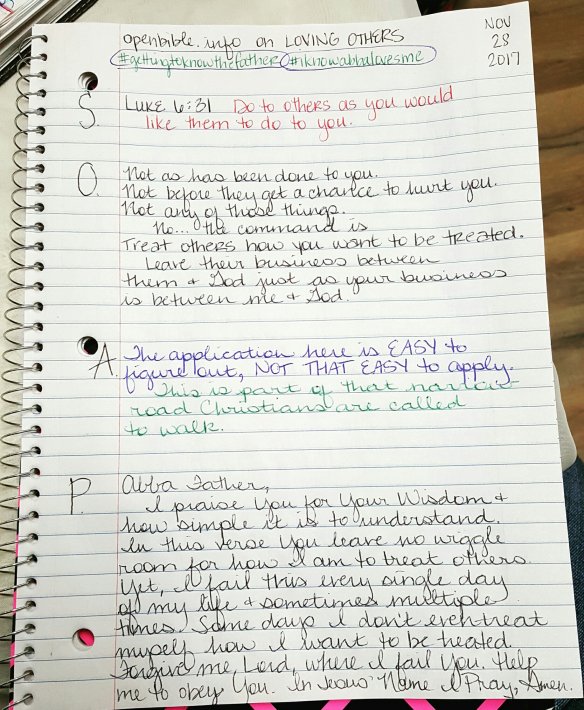 openbible.info on LOVING OTHERS
NOV
28
2017
#gettingtoknowthefather #iknowabbalovesme
S. Luke 6:31 Do to others as you would
like them to do to you.
O. Not as has been done to you.
Not before they get a chance to hurt you.
Not any of those things.
No... the command is
Treat others how you want to be treated.
Leave their business between
them + God just as your business
is between me + God.
A. The application here is EASY to
figure out, NOT THAT EASY to apply.
This is part of that narrow
road Christians are called
to walk.
P. Abba Father,
I praise You for Your Wisdom +
how simple it is to understand.
In this verse You leave no wiggle
room for how I am to treat others.
Yet, I fail this every single day
of my life + sometimes multiple
times. Some days I don't even treat
myself how I want to be treated.
Forgive me, Lord, where I fail You. Help
me to obey You. In Jesus' Name I Pray, Amen.